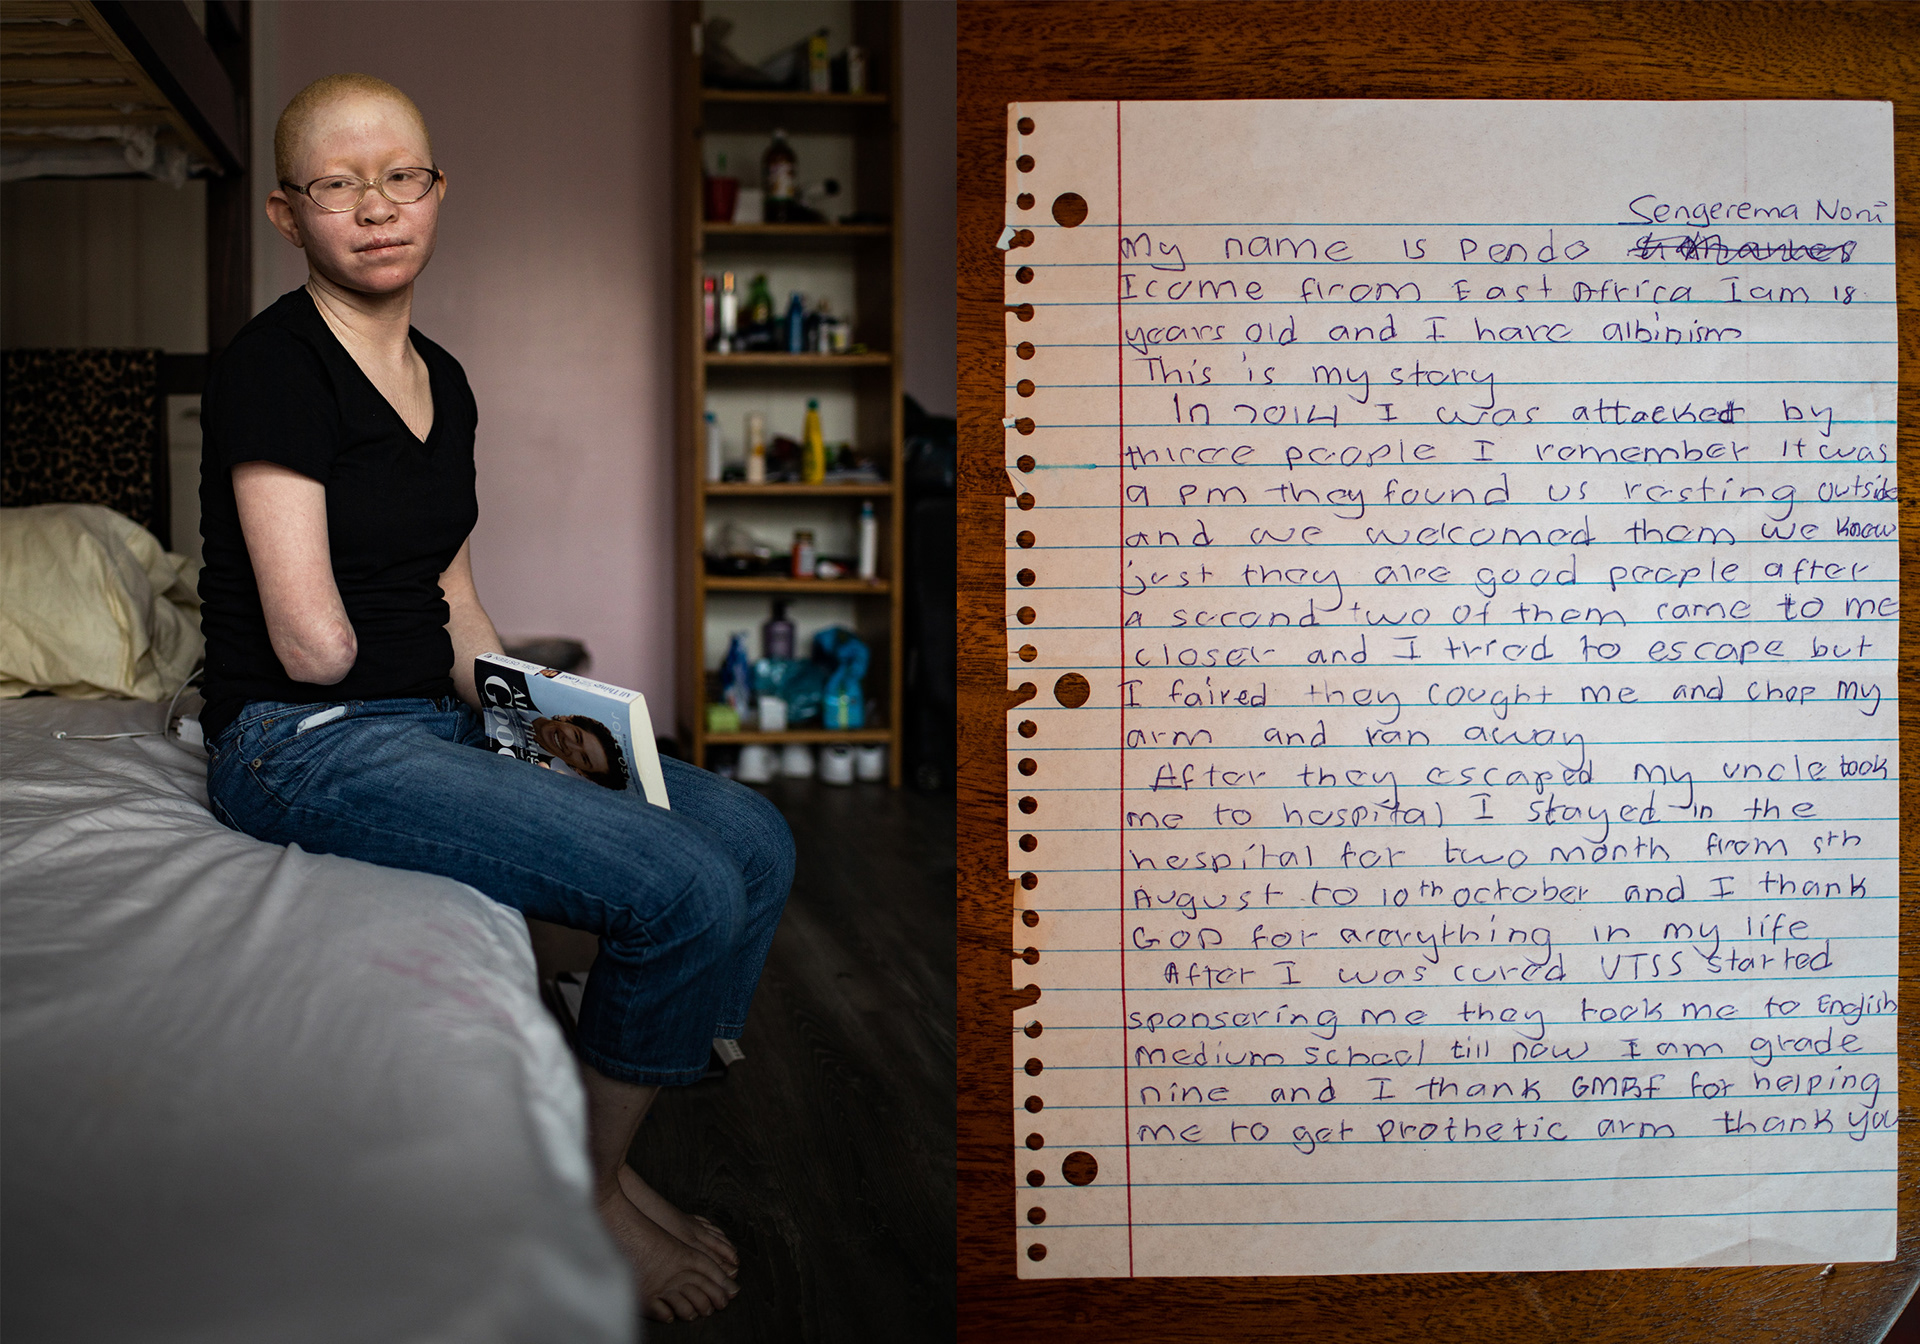 All Things
Good
JOEL OSTEEN
Sengerema Noni
My name is Pendo
I come from East Africa I am 18
years old and I have albinism
This is my story
In 2014 I was attacked by
three people I remember it was
9 pm they found us resting outside
and we welcomed them we know
just they are good people after
a second two of them came to me
closer and I tried to escape but
I faired they cought me and chop my
arm and ran away
After they escaped my uncle took
me to hospital I stayed in the
hospital for two month from 5th
August to 10th october and I thank
GOD for averything in my life
After I was cured UTSS started
sponsoring me they took me to English
medium school till now I am grade
nine and I thank GMRF for helping
me to get prothetic arm thank you